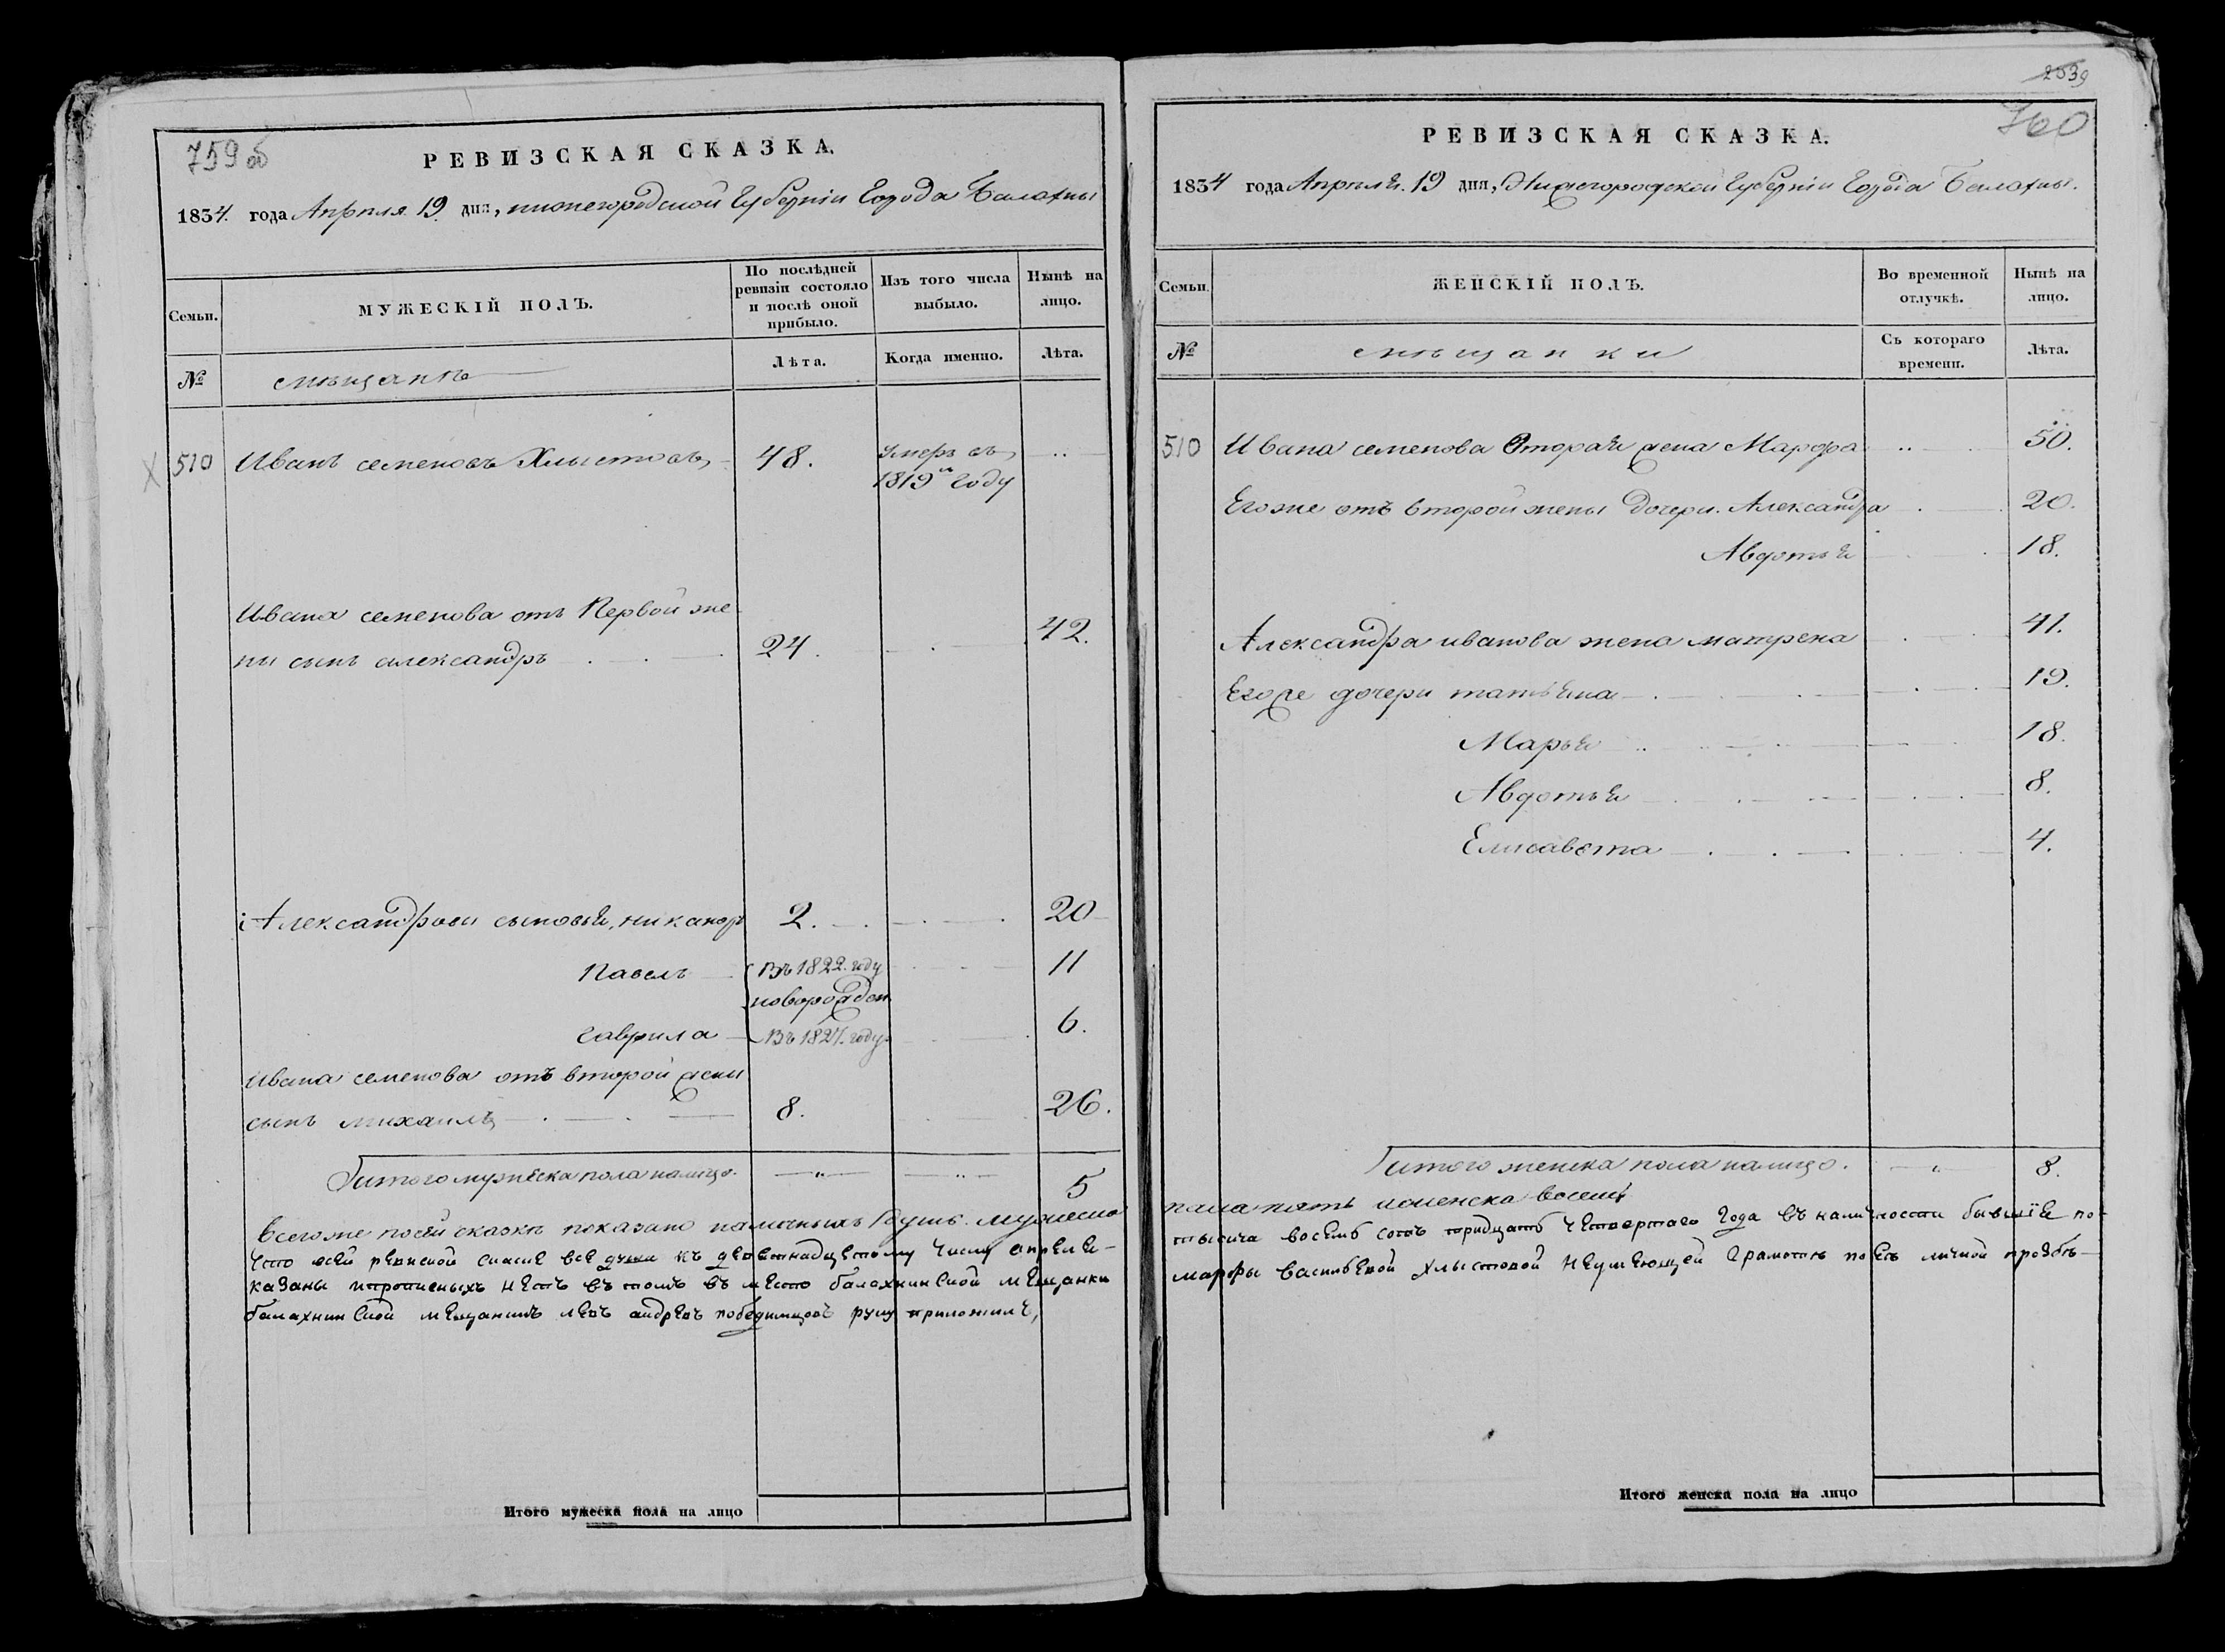 759 об
РЕВИЗСКАЯ СКАЗКА.
1834. года Апреля 19. дня, нижегородской Губернiи Города Балахны
Семьи.
МУЖЕСКIЙ ПОЛЪ.
По послѣдней ревизiи состояло и послѣ оной прибыло.
Изъ того числа выбыло.
Нынѣ на лицо.
№
мѣщанѣ
Лѣта.
Когда именно.
Лѣта.
510 Иванъ семеновъ Хлыстовъ 48. умеръ въ
1819м году
Ивана семенова отъ Первой же
ны сынъ александръ 24. 42.
Александровы сыновья, никаноръ 2. 20
Павелъ Въ 1822. году 11
новорожден
гаврила Въ 1827. году 6.
Ивана семенова отъ второй жены
сынъ михаилъ 8. 26.
итого мужеска пола налицо. 5
Всегоже посей сказкѣ показано наличныхъ душъ. мужеска
Что всей ревиской скаске все души къ деветнадцетому числу апреле-
казаны ипрописныхъ нетъ въ томъ въ место балахнинской мещанки
балахнинской мещанинъ левъ андревъ победимцовъ руку приложилъ,
Итого мужеска пола на лицо
2539
760
РЕВИЗСКАЯ СКАЗКА.
1834 года Апреля. 19 дня, Нижегородской Губернiи Города Балахны.
Семьи.
ЖЕНСКIЙ ПОЛЪ.
Во временной отлучкѣ.
Нынѣ на лицо.
№
мѣщанки
Съ котораго времени.
Лѣта.
510 Ивана семенова Вторая жена Марфа 50.
Егоже отъ второй жены дочери. Александра 20.
Авдотья 18.
Александра иванова жена матрена 41.
Егоже дочери татьяна 19.
Марья 18.
Авдотья 8.
Елисавета 4.
итого женска пола налицо. 8.
пола пять иженска восемь
тысяча восемь сотъ тридцать четвертаго года въ наличности бывшiе по-
марфы васильевой хлыстовой неумеющей грамоте поее личной прозбе
Итого женска пола на лицо